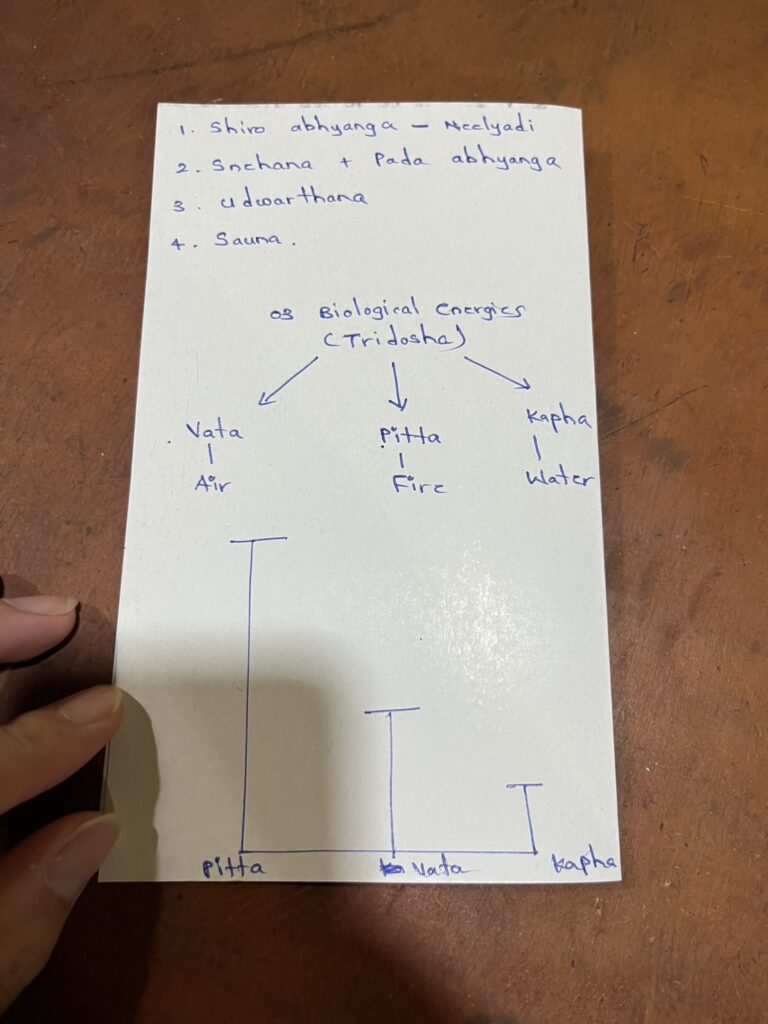 1. Shiro abhyanga – Neelyadi
2. Snehana + Pada abhyanga
3. Udwarthana
4. Sauna.
03 Biological Energies
(Tridosha)
Vata Pitta Kapha
Air Fire Water
Pitta Vata Kapha